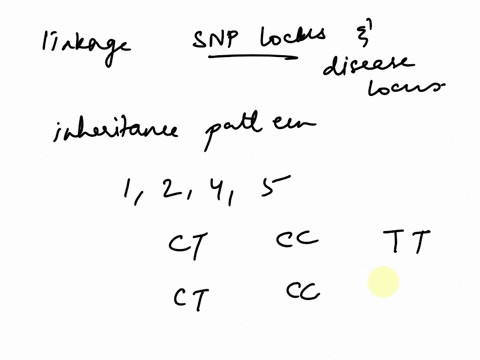 linkage SNP locus &
disease
locus
inheritance pattern
1, 2, 4, 5
CT CC TT
CT CC